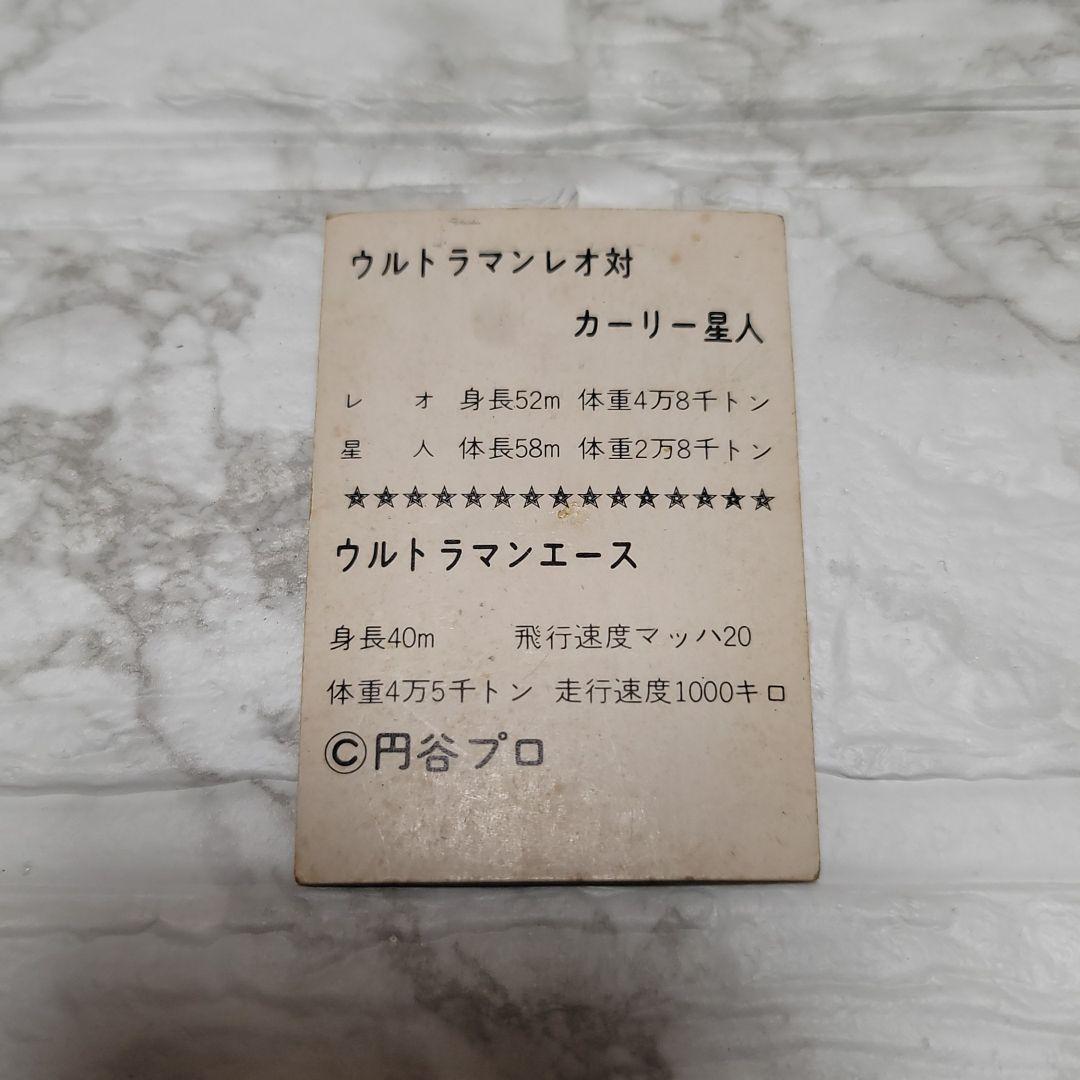 ウルトラマンレオ対
カーリー星人
レオ 身長52m 体重4万8千トン
星人 体長58m 体重2万8千トン
☆☆☆☆☆☆☆☆☆☆☆☆☆☆☆
ウルトラマンエース
身長40m 飛行速度マッハ20
体重4万5千トン 走行速度1000キロ
©円谷プロ